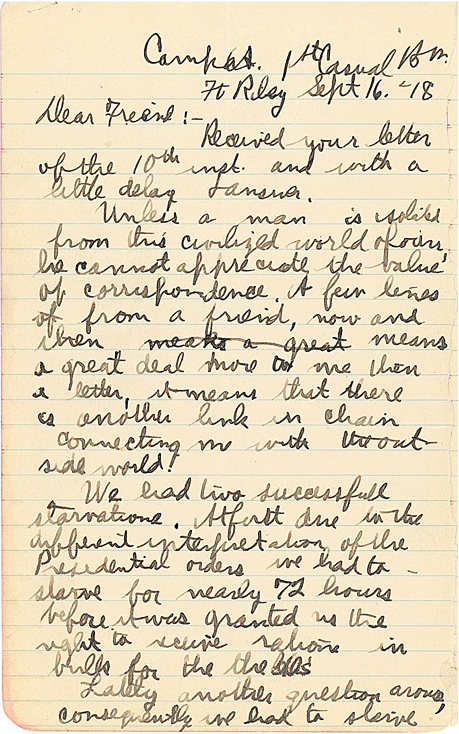 Camp 1st Casual Bn.
Ft Riley Sept 16. -18
Dear Friend :-
Received your letter
of the 10th inst. and with a
little delay I answer.
Unless a man is isolited
from this civilized world of ours,
he cannot appreciate the value
of correspondence. A few lines
of from a friend, now and
then means a great means
a great deal more to me then
a letter, it means that there
is another link in chain
connecting me with the out-
side world!
We had two successfull
starvations. At first due to the
different interpretation of the
Presidential orders we had to -
starve for nearly 72 hours
before it was granted us the
right to receive rations in
bulk for the the
Lately another question arous,
consequently we had to starve